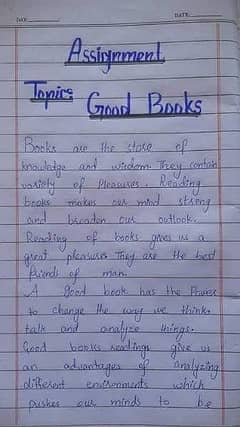 DATE
DATE
Assignment
Topics Good Books
Books are the store of
knowledge and wisdom. They contain
variety of Pleasures. Reading
books makes our mind strong
and broaden our outlook.
Reading of books gives us a
great pleasures They are the best
friends of man.
A good book has the
to change the way we think
talk and analyze things.
Good books readings give us
an advantages of analyzing
different environments which
pushes our minds to be